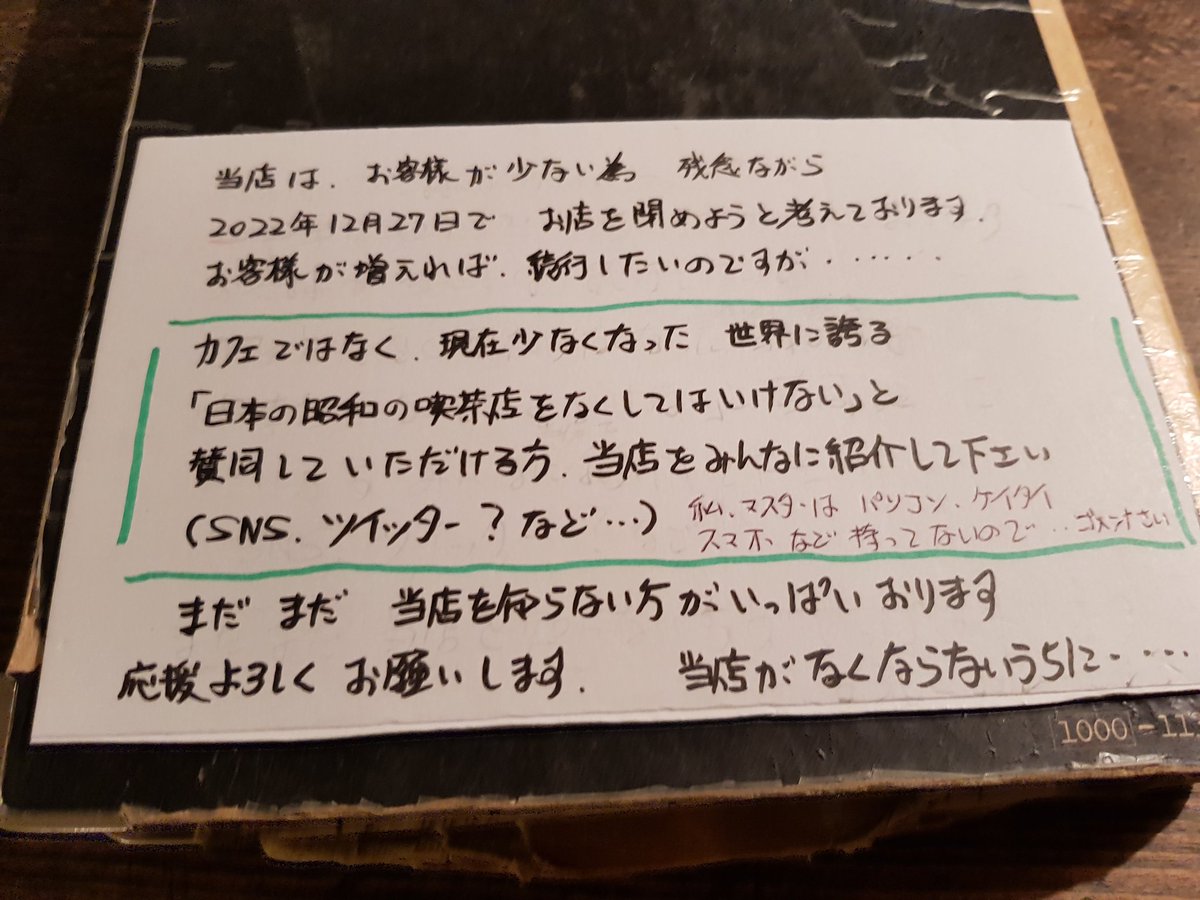 当店は、お客様が少ない為 残念ながら
2022年12月27日で お店を閉めようと考えております.
お客様が増えれば、続行したいのですが・・・・・・
カフェではなく、現在少なくなった 世界に誇る
「日本の昭和の喫茶店をなくしてはいけない」と
賛同していただける方、当店をみんなに紹介して下さい
(SNS、ツイッター?など…)
私、マスターは パソコン、ケイタイ
スマホ など 持ってないので… ゴメンナさい
まだ まだ 当店を知らない方がいっぱい おります
応援よろしくお願いします. 当店がなくならないうちに・・・・
1000-11